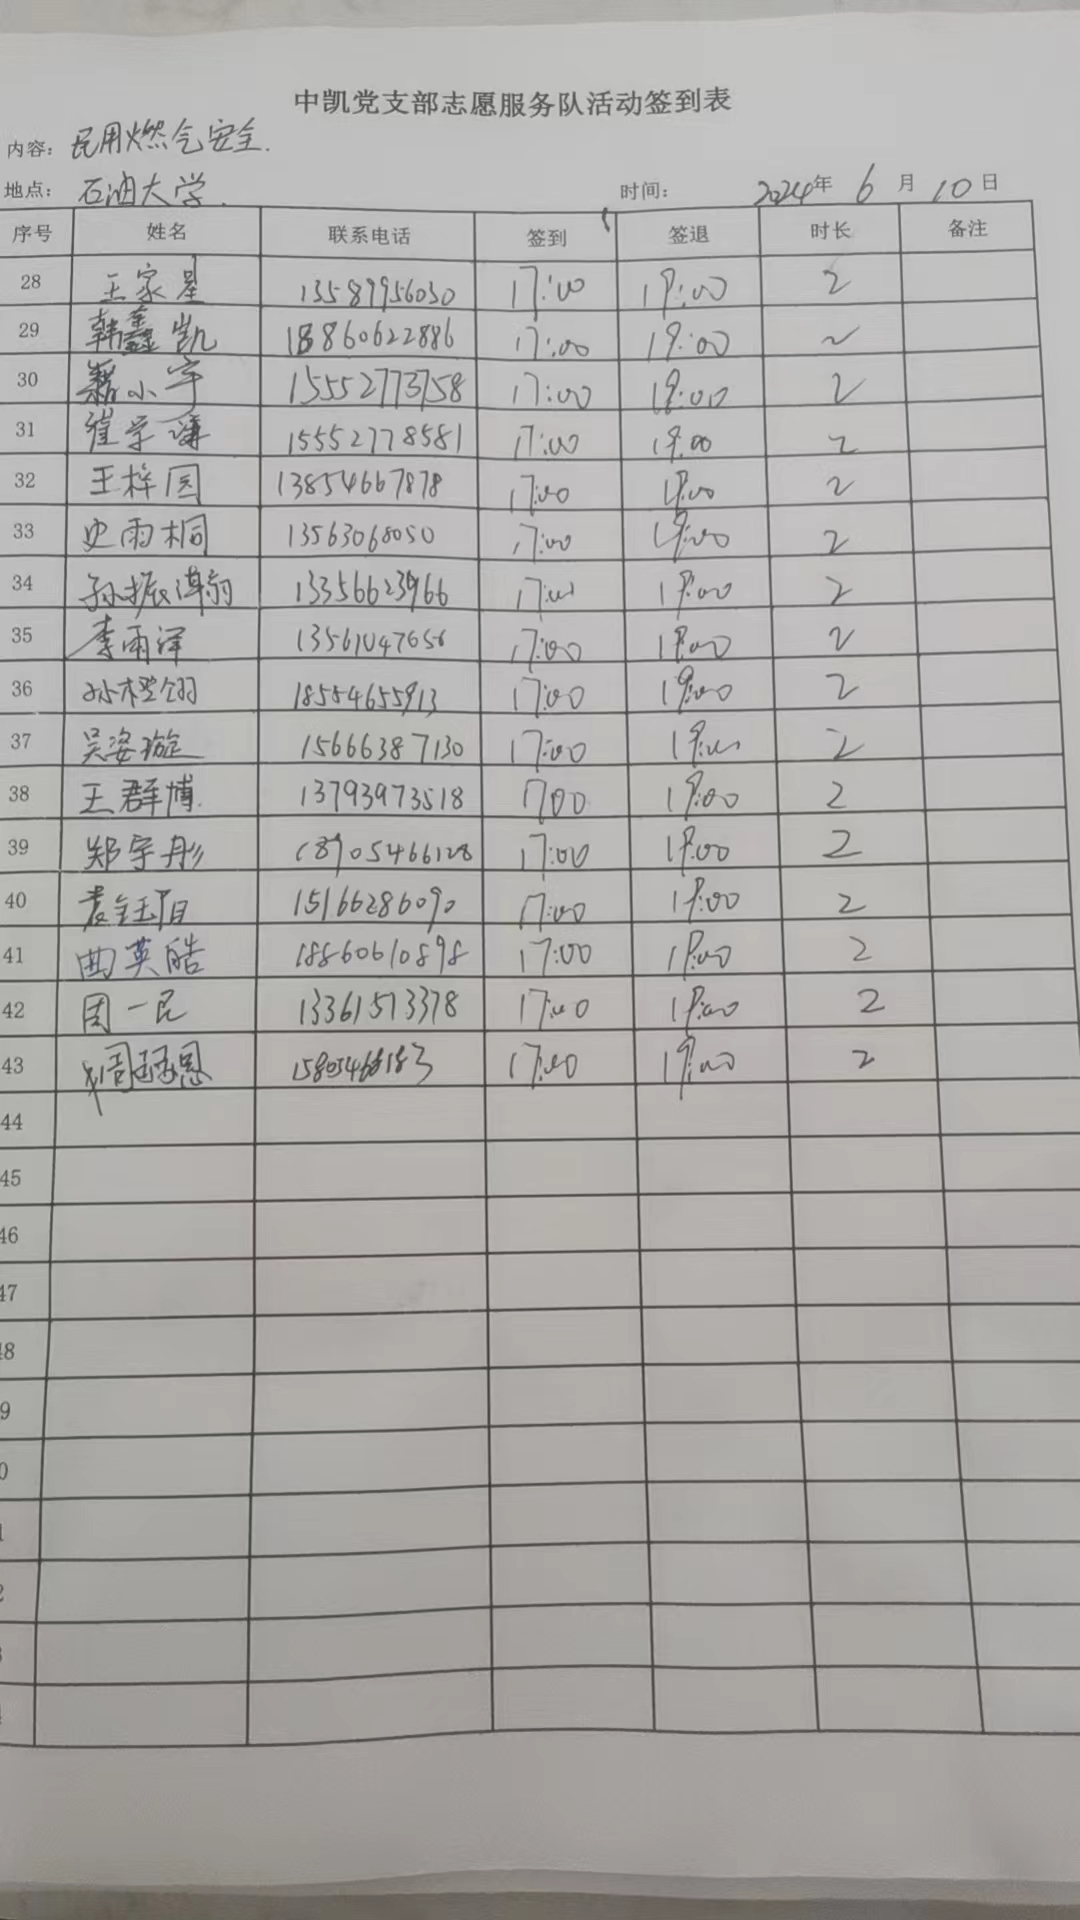 中凯党支部志愿服务队活动签到表
内容: 民用燃气安全.
地点: 石油大学. 时间: 2024年 6月 10日
序号 姓名 联系电话 签到 签退 时长 备注
28 王家星 13589956030 17:00 19:00 2
29 韩鑫凯 18860622886 17:00 19:00 2
30 小宇 15552773758 17:00 19:00 2
31 崔学谦 15552778581 17:00 19:00 2
32 王梓园 13854667878 17:00 19:00 2
33 史雨桐 13563068050 17:00 19:00 2
34 孙振 13356623966 17:00 19:00 2
35 李雨泽 13561047656 17:00 19:00 2
36 孙 翊 18554655913 17:00 19:00 2
37 吴姿璇 15666387130 17:00 19:00 2
38 王群博. 13793973518 1700 19:00 2
39 郑宇彤 18905466128 17:00 19:00 2
40 袁钰 15166286090 17:00 19:00 2
41 曲英皓 18860610898 17:00 19:00 2
42 周一民 13361573378 17:00 19:00 2
43 恩 17:00 19:00 2
44
45
46
47
48
9
0
1
2
3